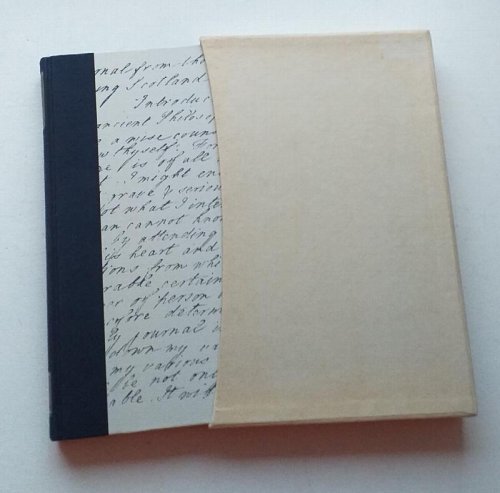 onal from the
ing Scotland
Introduc
ancient Philoso
a wise couns
w thyself: For
e is of all
t. I might en
grave & seriou
ot what I inte
an cannot know
by attending
is heart and
tions from whi
rable certain
er of person
efore determ
ly journal
down my va
my various
be not on
able. It wi